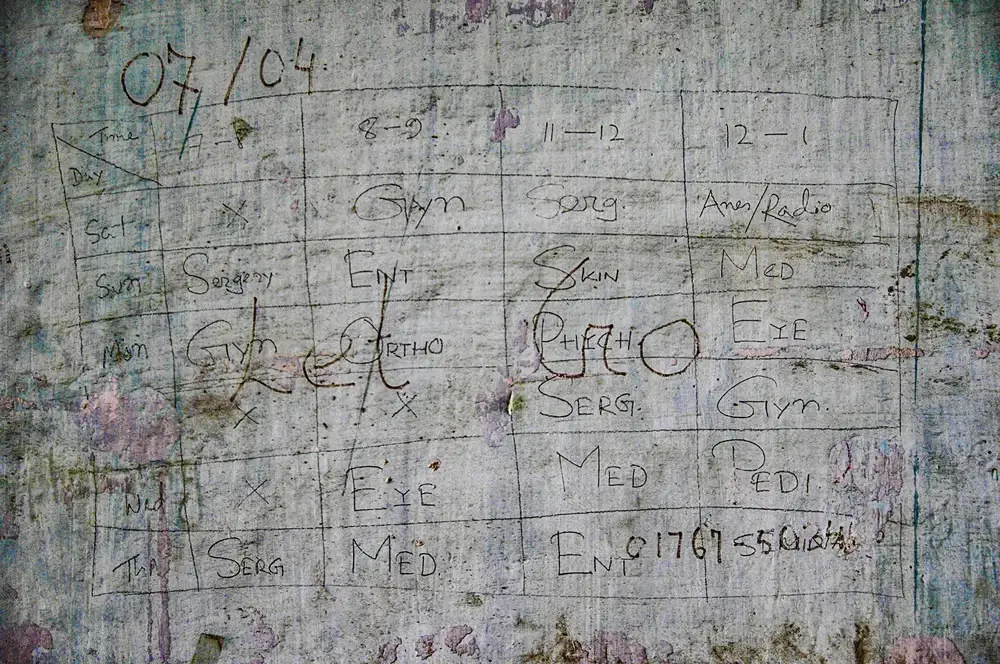 07/04
Time 7-8 8-9 11-12 12-1
Day
Sat X Gyn Serg. Anes/Radio
Sun Sergery ENT SKIN MED
Mon Gyn ORTHO EYE
X X SERG. Gyn.
Wed X EYE MED PEDI
Thr SERG MED. ENT 01767 55